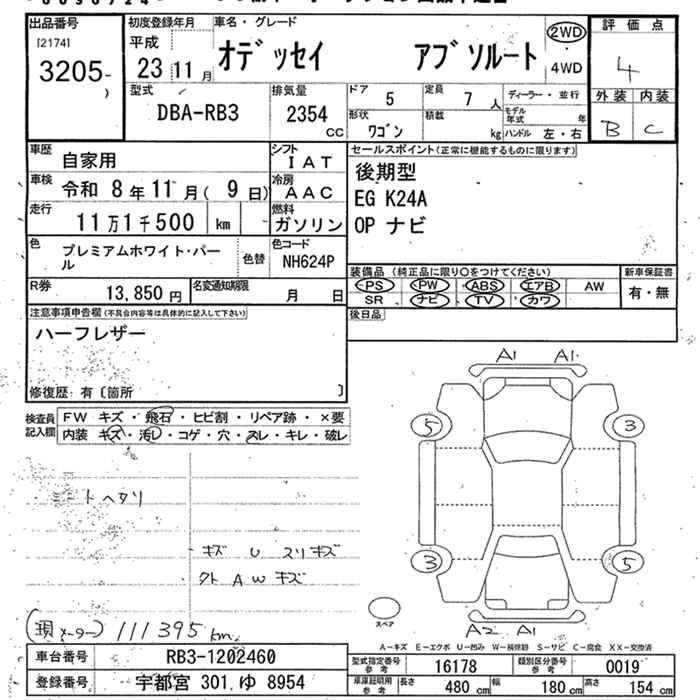 出品番号
[2174]
3205-
初度登録年月
平成
23 11 月
車名・グレード
オデッセイ アブソルート
2WD
4WD
評価点
4
外装 内装
B C
型式
DBA-RB3
排気量
2354
CC
ドア
5
定員
7 人
ディーラー・並行
形状
ワゴン
積載
kg
モデル年式 年
ハンドル 左・右
車歴
自家用
シフト
IAT
車検
令和 8年 11月( 9日)
冷房
AAC
走行
11万1千500 km
燃料
ガソリン
色
プレミアムホワイト・パール
色替
色コード
NH624P
R券
13,850 円
名変通知期限
月 日
セールスポイント(正常に機能するものに限ります)
後期型
EG K24A
OP ナビ
装備品 (純正品に限り○をつけてください)
PS PW ABS エアB AW
SR ナビ TV カワ
新車保証書
有・無
後日品
注意事項申告欄(不具合内容等は具体的に記入して下さい)
ハーフレザー
修復歴:有〔箇所 〕
検査員記入欄
FW キズ・飛石・ヒビ割・リペア跡・×要
内装 キズ・汚レ・コゲ・穴・スレ・キレ・破レ
シートヘタリ
キズ U スリキズ
クト AW キズ
(現メーター) 111395 km
A1 A1
5 3
3 5
スペア
A2 A1
A-キズ E-エクボ U-凹み W-板修跡 S-サビ C-腐食 XX-交換済
車台番号 RB3-1202460
登録番号 宇都宮 301 ゆ 8954
型式指定番号参考 16178
類別区分番号参考 0019
車庫証明用参考 長さ 480 cm 幅 180 cm 高さ 154 cm